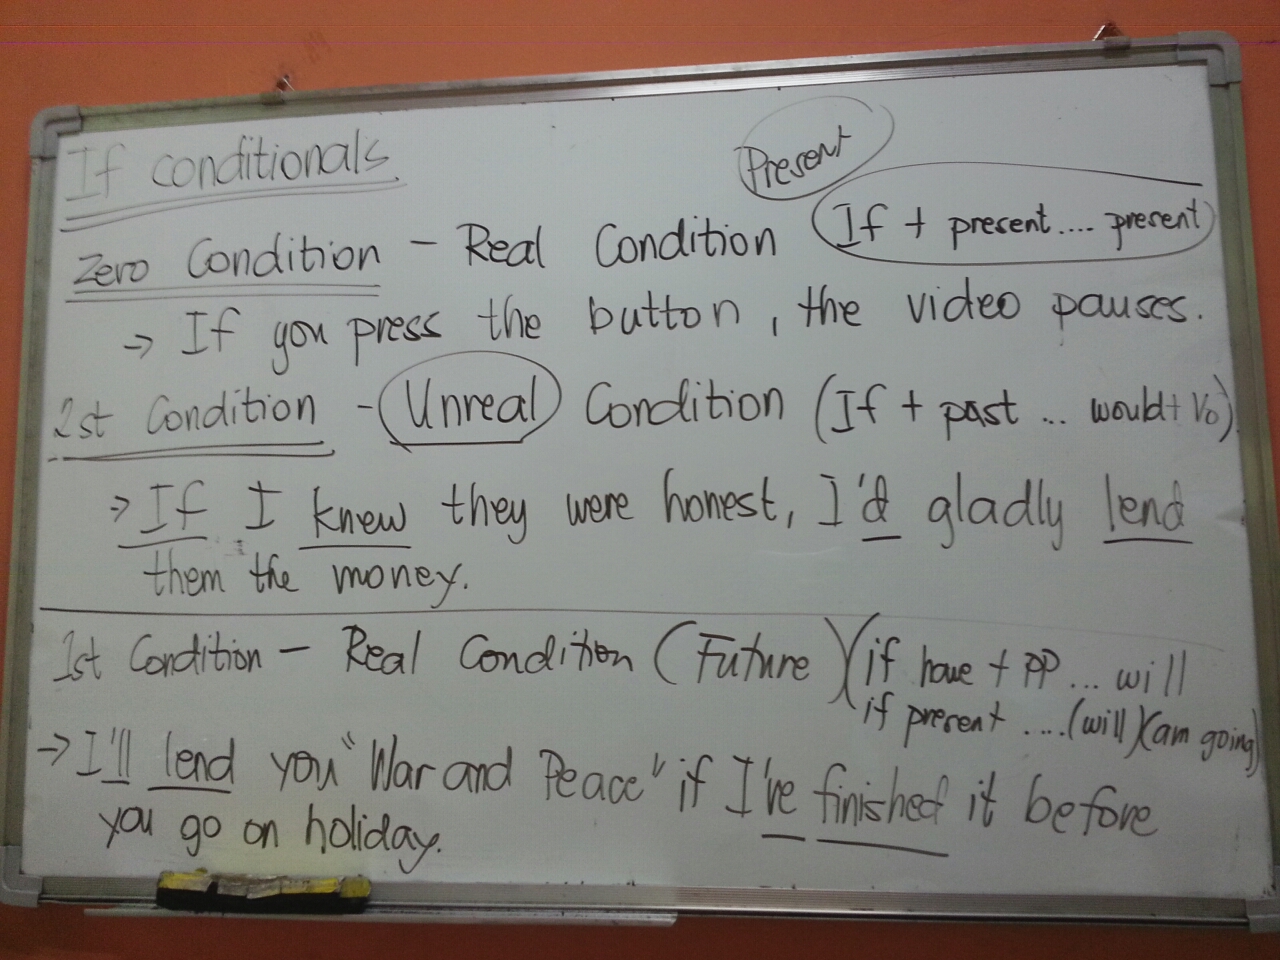 If conditionals
Present
Zero Condition - Real Condition If + present .... present
→ If you press the button, the video pauses.
2st Condition - Unreal Condition (If + past ... would + Vo)
→ If I knew they were honest, I'd gladly lend
them the money.
1st Condition - Real Condition (Future) (if have + PP ... will
if present .... (will)(am going)
→ I'll lend you "War and Peace" if I've finished it before
you go on holiday.